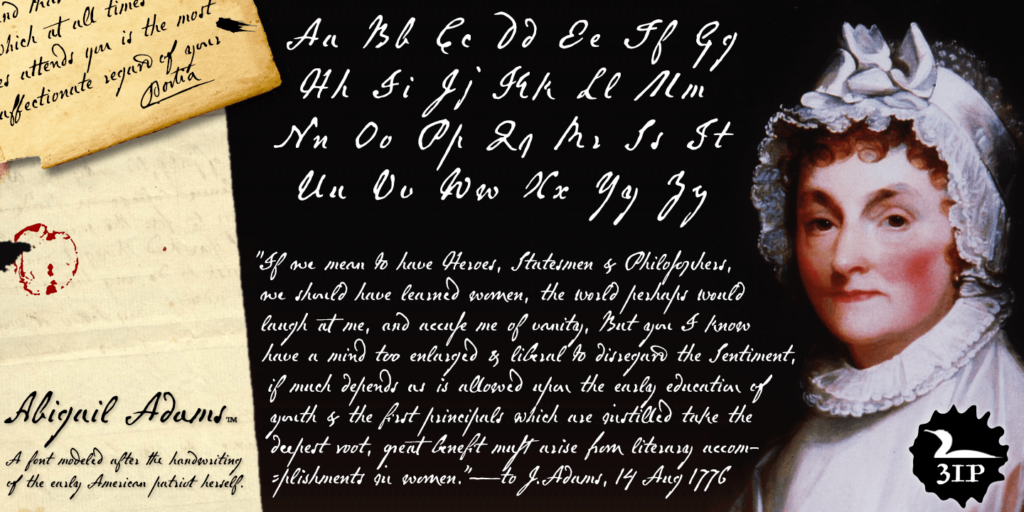 which at all times
es attends you is the most
affectionate regard of your
Portia
Aa Bb Cc Dd Ee Ff Gg
Hh Ii Jj Kk Ll Mm
Nn Oo Pp Qq Rr Ss Tt
Uu Vv Ww Xx Yy Zz
"If we mean to have Heroes, Statesmen & Philoſophers,
we should have learned women, the world perhaps would
laugh at me, and accuſe me of vanity, But you I know
have a mind too enlarged & liberal to disregard the Sentiment,
if much depends as is allowed upon the early education of
youth & the first principals which are instilled take the
deepest root, great benefit muſt arise from literary accom-
=plishments in women."—to J. Adams, 14 Aug 1776
Abigail Adams™
A font modeled after the handwriting
of the early American patriot herself.
3IP